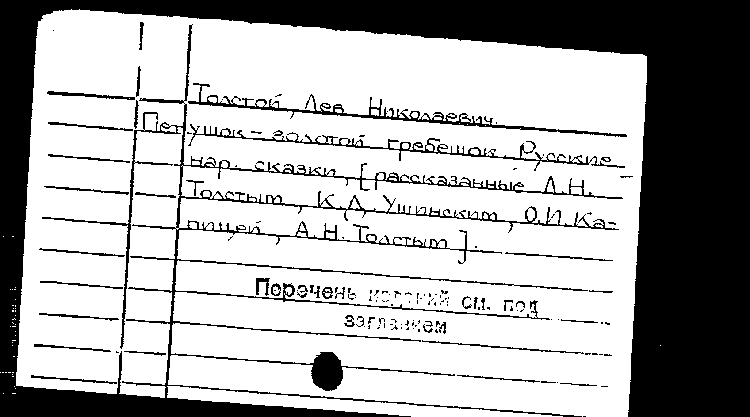 Толстой, Лев Николаевич.
Петушок-золотой гребешок. Русские
нар. сказки, [рассказанные Л.Н.
Толстым, К.Д. Ушинским, О.И. Ка-
пицей, А.Н. Толстым].
Перечень изданий см. под
заглавием